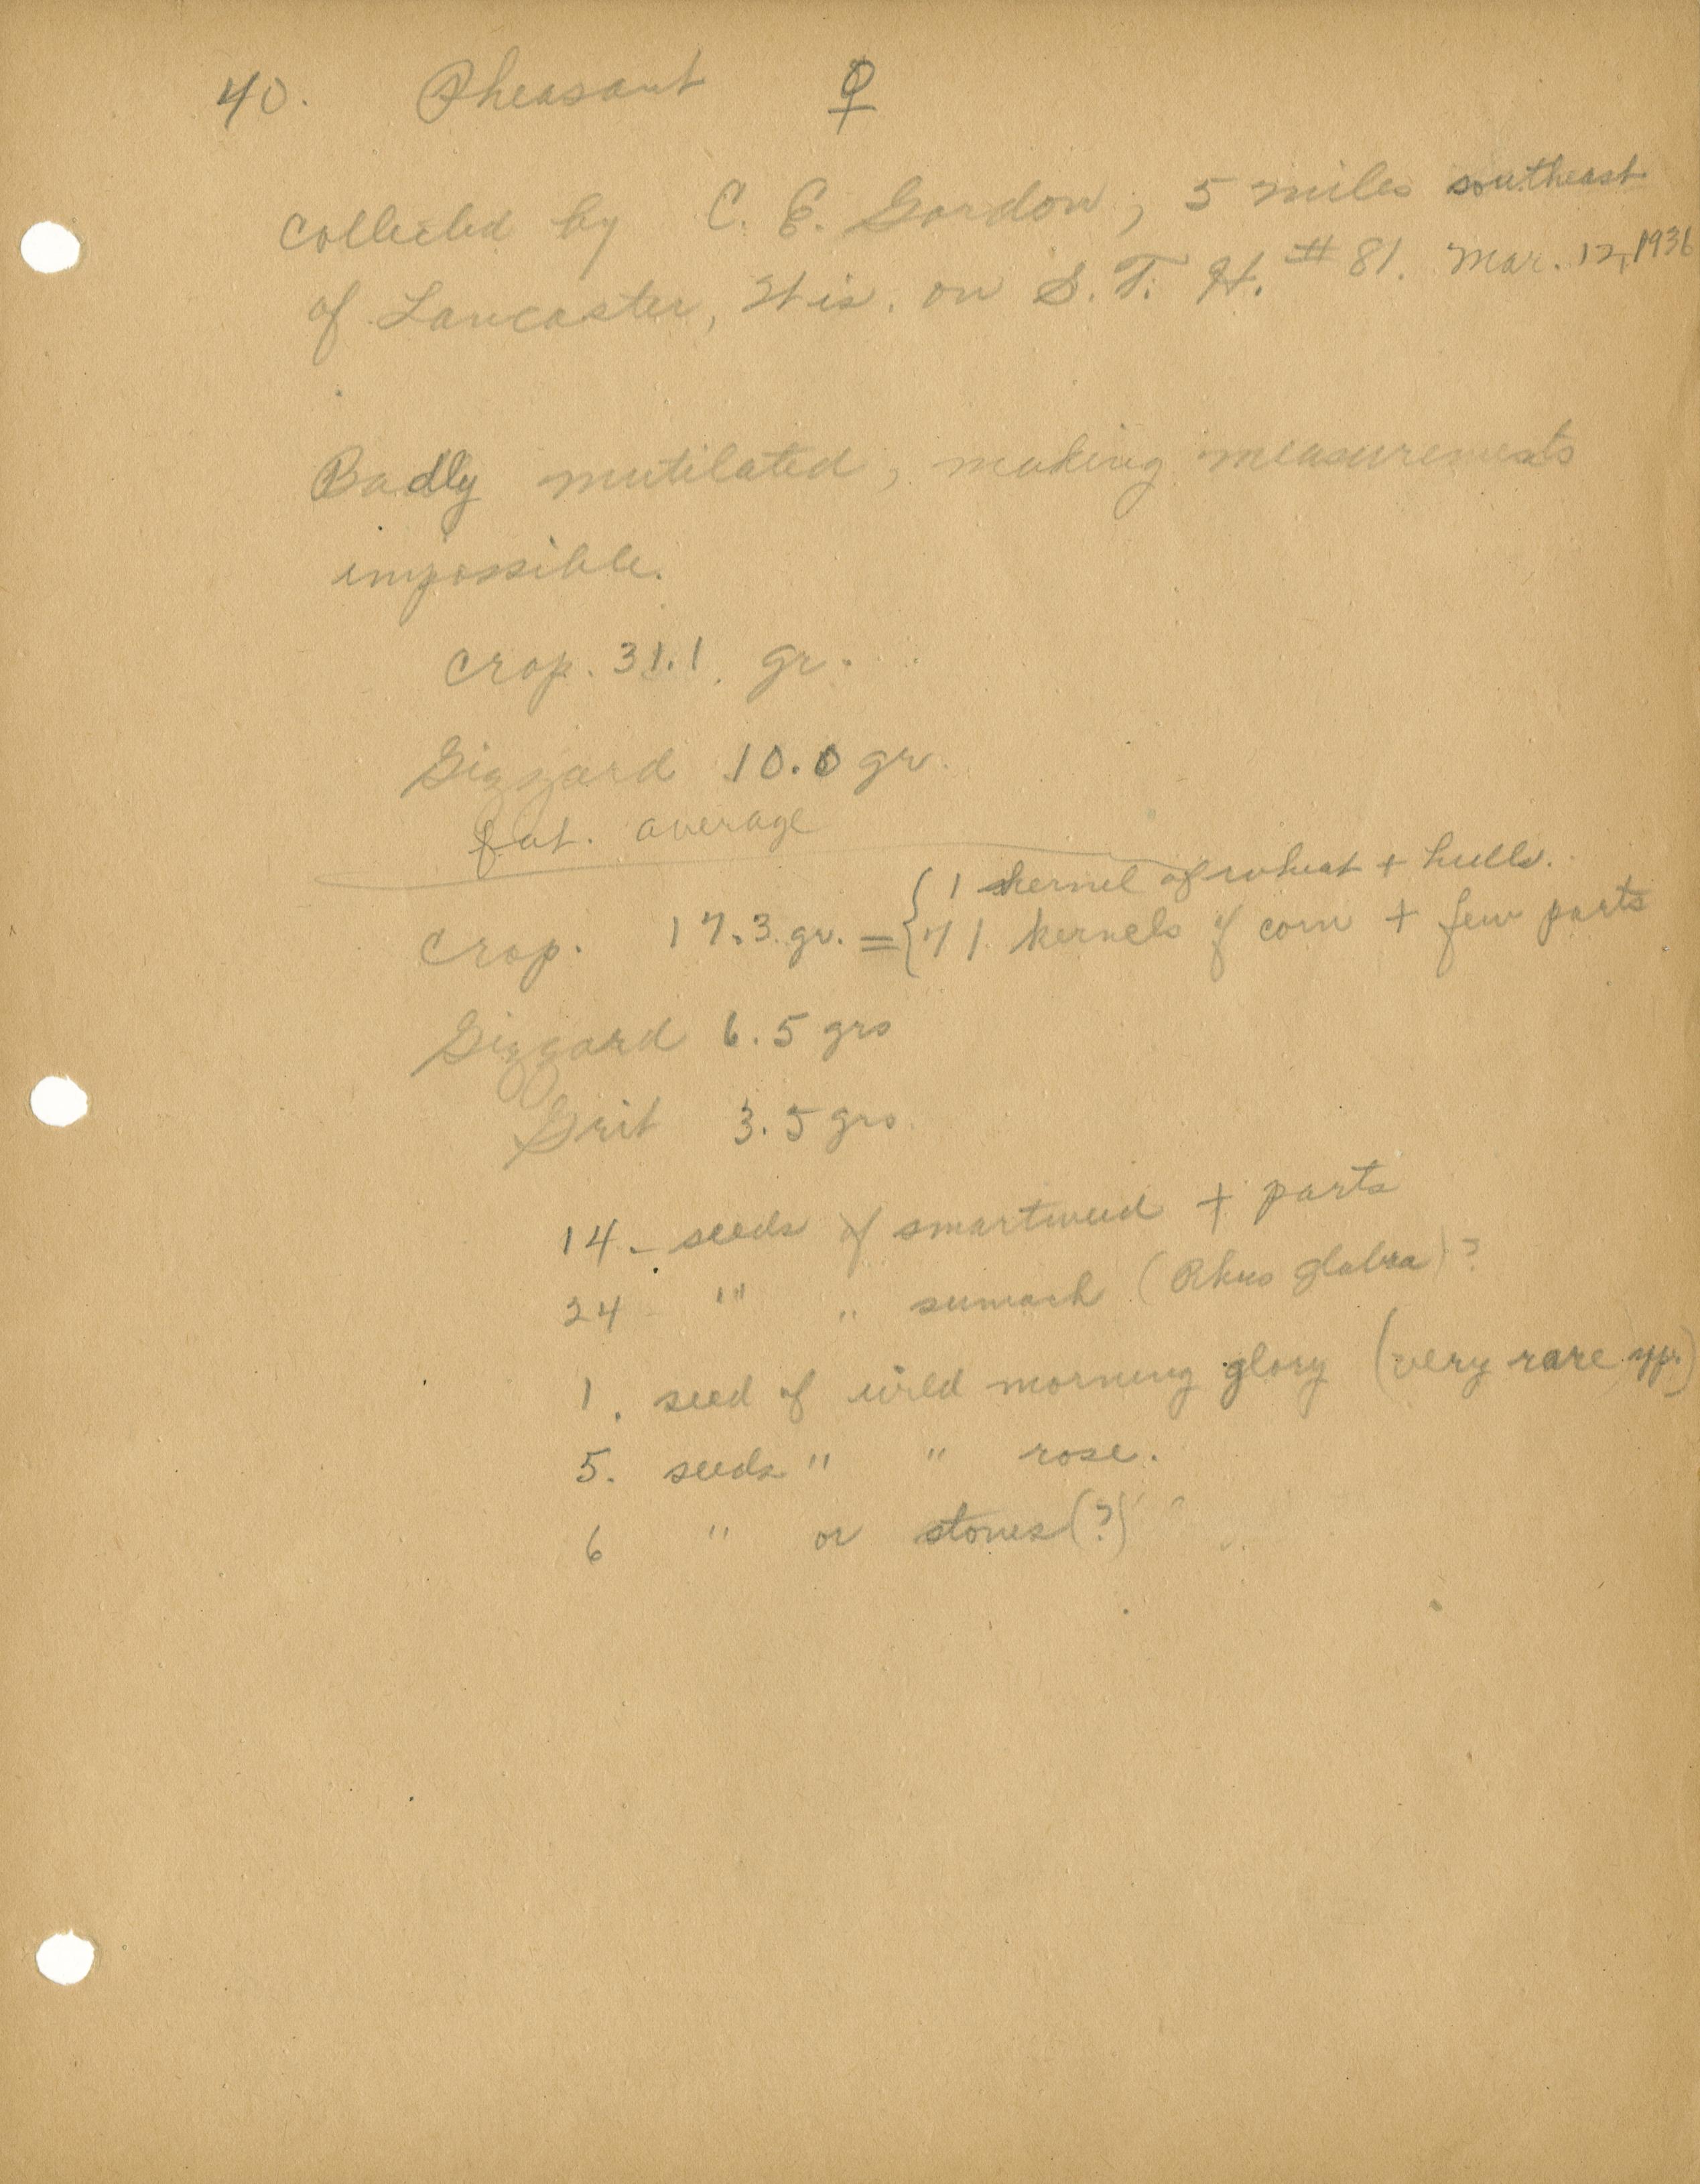 40. Pheasant ♀
Collected by C. E. Gordon, 5 miles southeast
of Lancaster, Wis. on S. T. H. # 81. Mar. 12, 1936
Badly mutilated, making measurements
impossible.
Crop. 31.1 gr.
Gizzard 10.0 gr.
fat. average
Crop. 17.3 gr. = { 1 kernel of wheat + hulls.
71 kernels of corn + few parts
Gizzard 6.5 grs
Grit 3.5 grs
14 - seeds of smartweed + parts
24 - " " sumach (Rhus glabra)?
1. seed of wild morning glory (very rare spr.)
5. seeds " " rose.
6 " or stones (?)